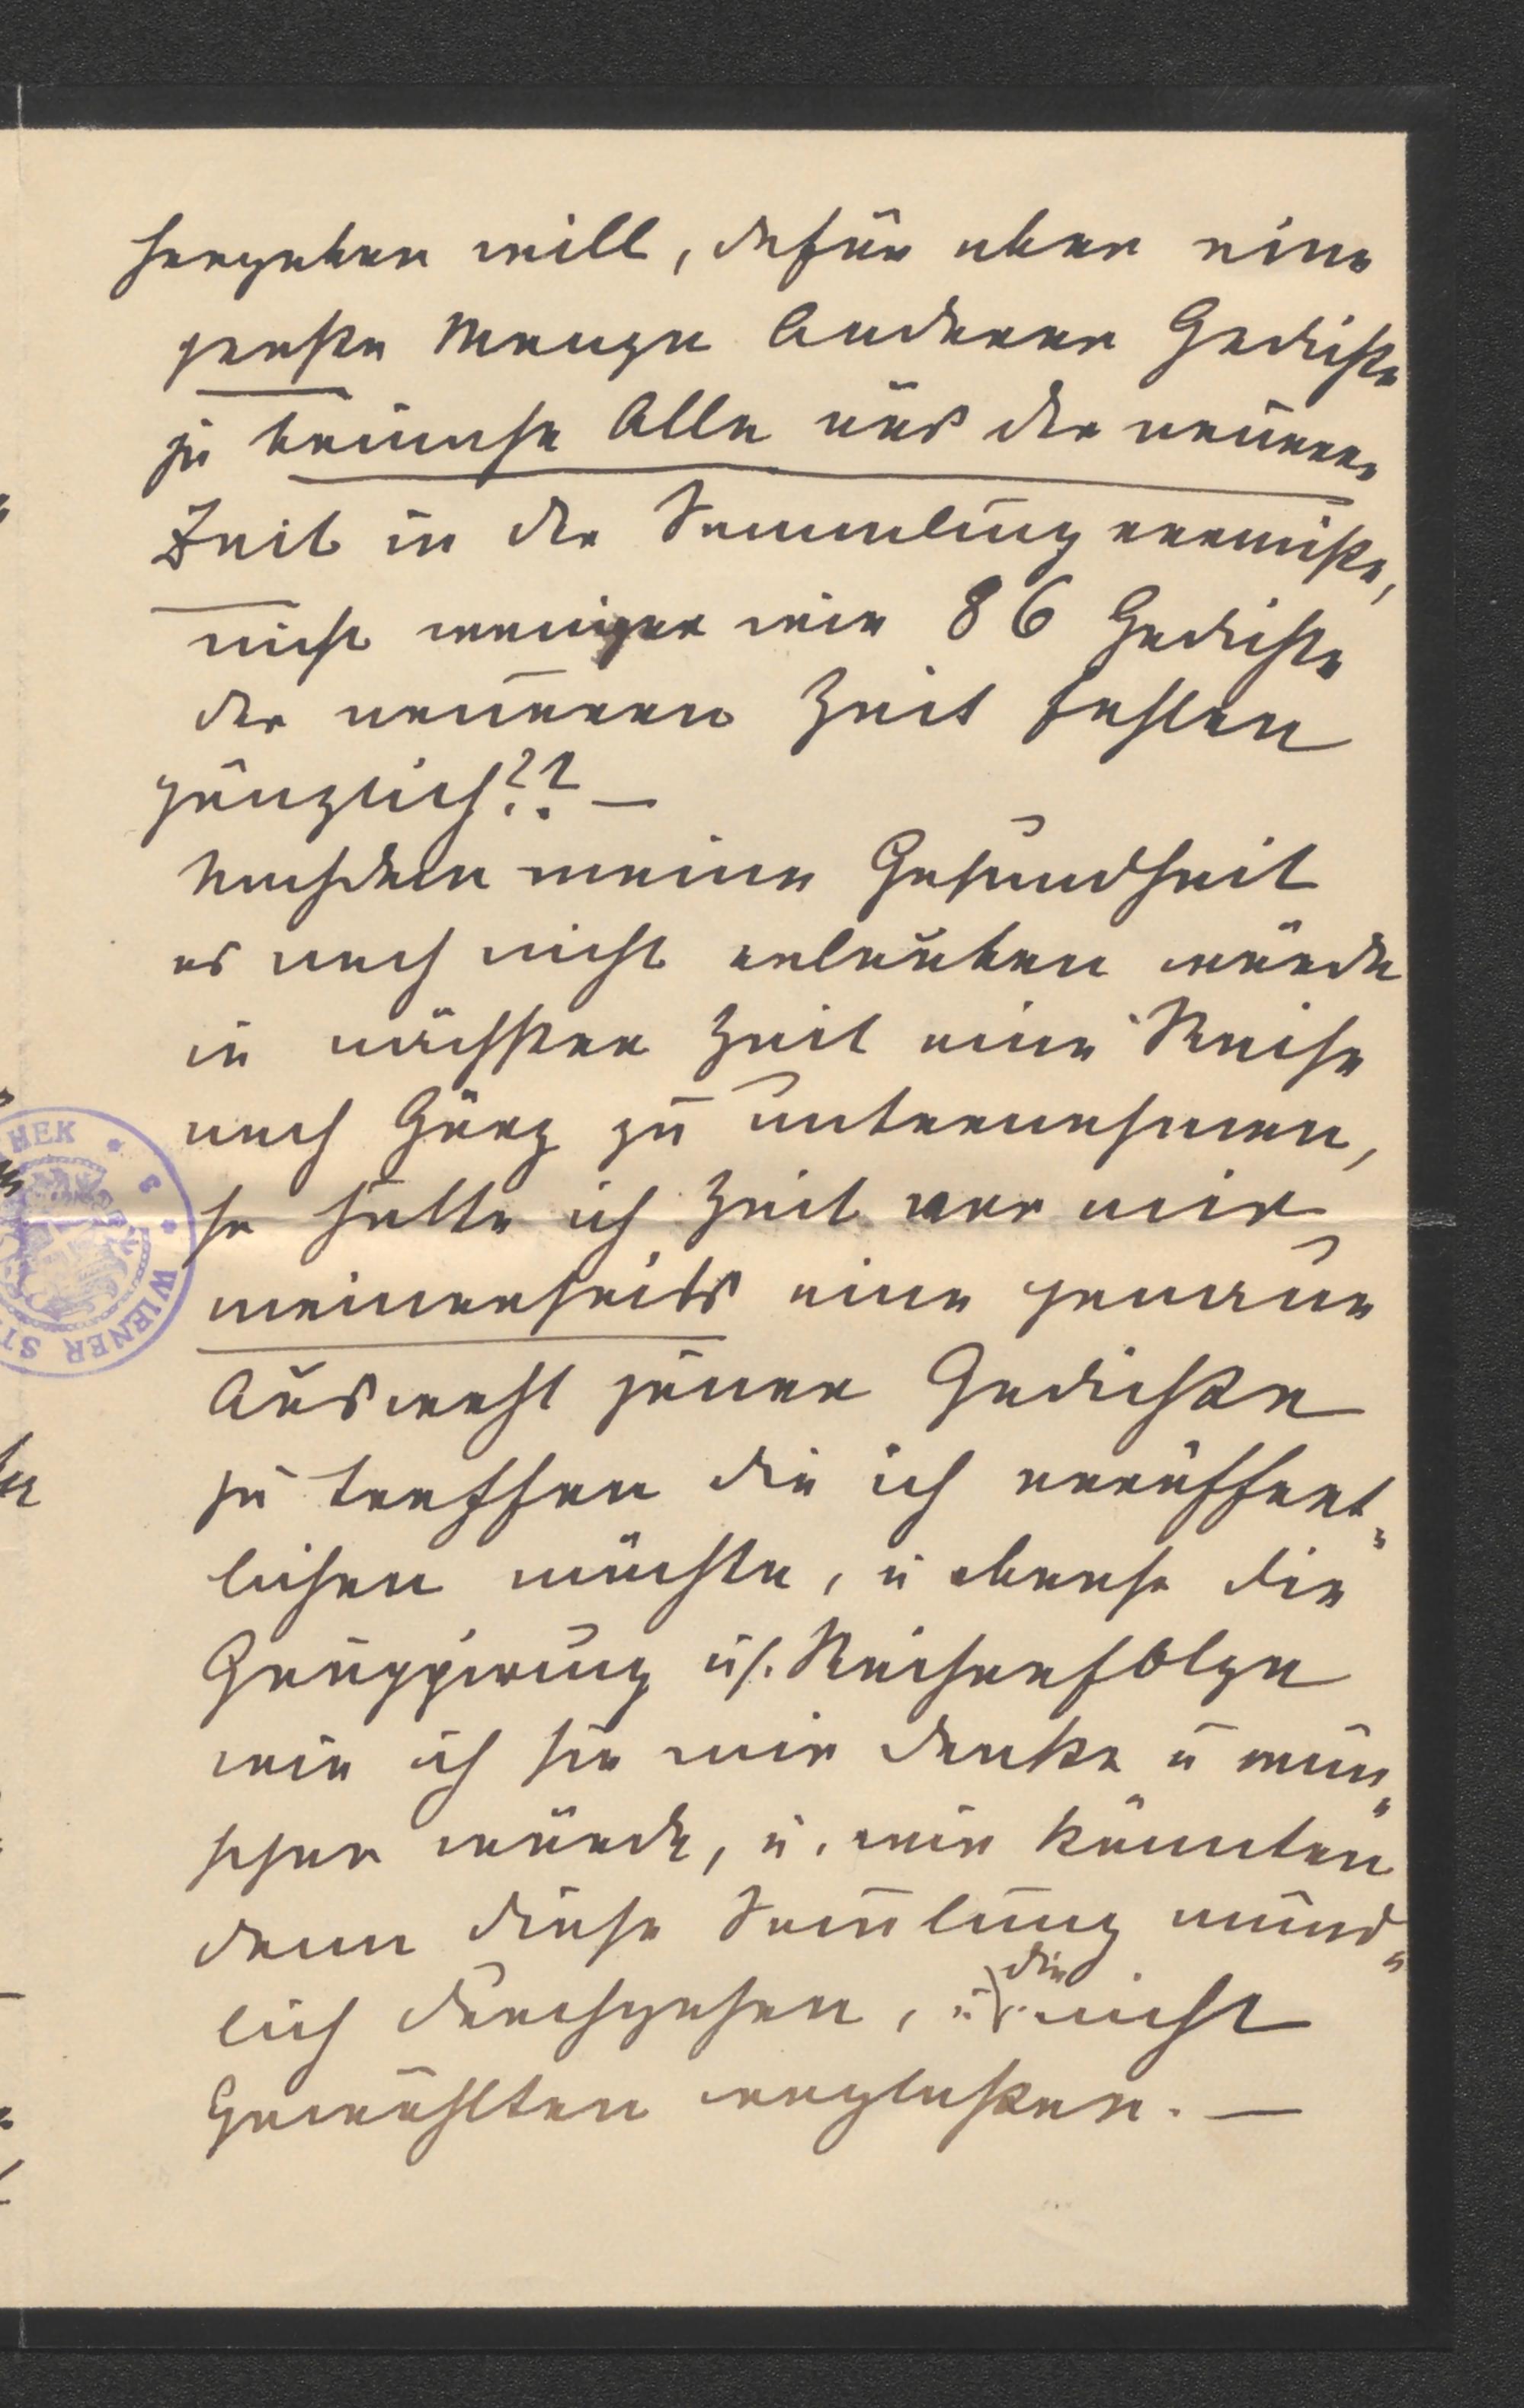 hergeben will, dafür aber eine
große Menge Anderer Gedichte
ja beinahe Alle aus der neueren
Zeit in der Sammlung vermiße,
nicht weniger wie 86 Gedichte
der neueren Zeit fehlen
gänzlich?? —
Nachdem meine Gesundheit
es noch nicht erlauben würde
in nächster Zeit eine Reise
nach Görz zu unternehmen,
so hätte ich Zeit vor mir
meinerseits eine genaue
Auswahl jener Gedichte
zu treffen die ich veröffent„
lichen möchte, u ebenso die
Gruppirung u. Reihenfolge
wie ich sie mir denke u wün„
schen würde, u. wir könnten
dann diese Sam̅lung münd„
lich durchgehen, u. die nicht
Gewählten weglaßen. —
HEK
WIENER ST